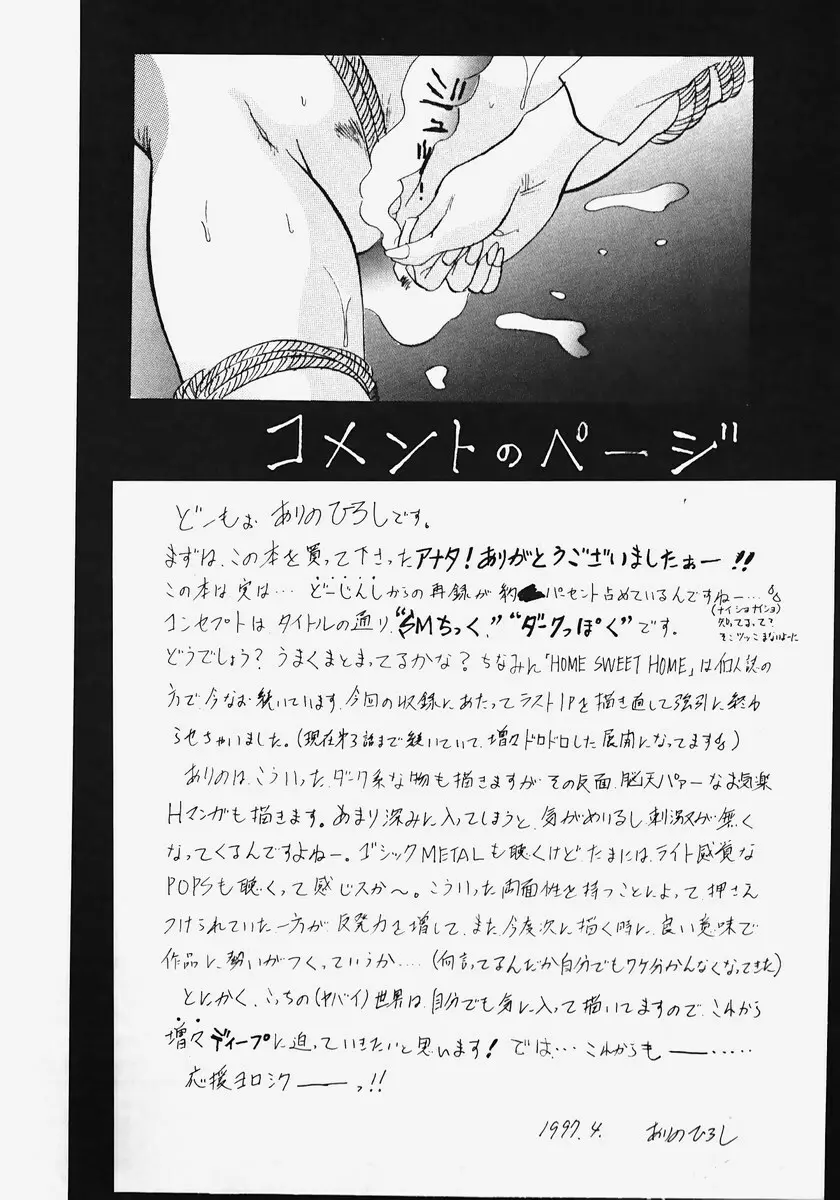 ジュルッ…
コメントのページ
どーもぉ ありのひろしです。
まずは、この本を買って下さったアナタ！ありがとうございましたぁー!!
この本は実は… どーじんしからの再録が約 パーセント占めているんですねー…
(ナイショナイショ)
知ってるって？
そこツッこまないよーに
コンセプトは タイトルの通り "SMちっく" "ダークっぽく" です。
どうでしょう？ うまくまとまってるかな？ ちなみに「HOME SWEET HOME」は個人誌の
方で今なお続いています。今回の収録にあたってラスト1Pを描き直して強引に終わ
らせちゃいました。(現在第3話まで続いていて、増々ドロドロした展開になってます)
ありのは、こういった ダーク系な物も描きますが その反面、脳天パァーなお気楽
Hマンガも描きます。あまり深みに入ってしまうと、気がめいるし 刺激が無く
なってくるんですよねー。ゴシックMETALも聴くけど たまには、ライト感覚な
POPSも聴くって感じスか〜。こういった両面性を持つことによって 押さえ
つけられていた一方が 反発力を増して、また、今度次に描く時に、良い意味で
作品に、勢いがつくっていうか…. (何言ってるんだか自分でもワケ分かんなくなってきた)
とにかく、こっちの(ヤバイ)世界は、自分でも気に入って描いてますので、これから
増々ディープに迫っていきたいと思います！ では… これからも ――……
応援ヨロシク ――っ!!
1997.4. ありのひろし